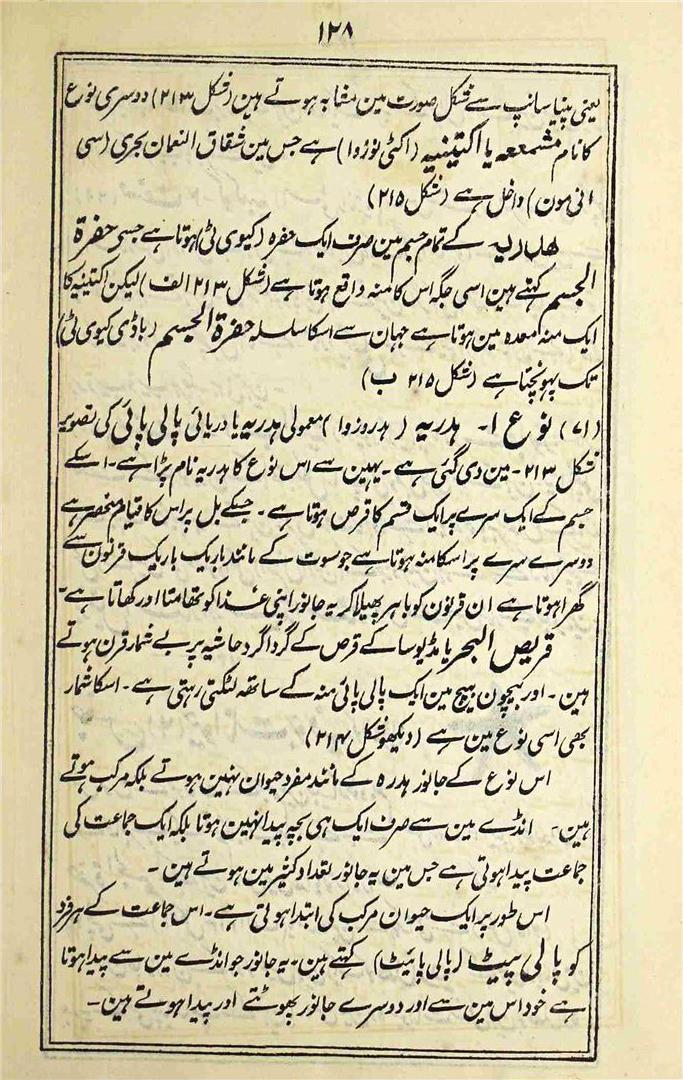 ۱۲۸
یعنی پنیا سانپ سے شکل صورت مین مشابہ ہوتے ہین (شکل ۲۱۳) دوسری نوع
کا نام مشمعہ یا اکتینیہ (اکٹی نوزوا) ہے جس مین شقاق النعمان بحری (سی
انی مون) داخل ہے (شکل ۲۱۵)
ھادریہ کے تمام جسم مین صرف ایک حفرہ (کیوی ٹی) ہوتا ہے جسے حفرۃ
الجسم کہتے ہین اسی جگہ اس کا منہ واقع ہوتا ہے (شکل ۲۱۳ الف) لیکن اکتینیہ کا
ایک منہ معدہ مین ہوتا ہے جہان سے اسکا سلسلہ حفرۃ الجسم (باڈی کیوی ٹی)
تک پہونچتا ہے (شکل ۲۱۵ ب)
(۷۱) نوع ۱۔ ہدریہ (ہدروزوا) معمولی ہدریہ یا دریائی پالی پائی کی تصویر
شکل ۲۱۳۔ مین دی گئی ہے۔ یہین سے اس نوع کا ہدریہ نام پڑا ہے۔ اسکے
جسم کے ایک سرے پر ایک قسم کا قرص ہوتا ہے۔ جسکے بل پر اس کا قیام منحصر ہے
دوسرے سرے پر اسکا منہ ہوتا ہے جو سوت کے مانند باریک باریک قرنون سے
گھرا ہوتا ہے ان قرنون کو باہر پھیلا کر یہ جانور اپنی غذا کو تھامتا اور کھاتا ہے۔
قریص البحر یا مڈیوسا کے قرص کے گرداگرد حاشیہ پر بے شمار قرن ہوتے
ہین۔ اور بیچون بیچ مین ایک پالی پائی منہ کے ساتھ لٹکتی رہتی ہے۔ اسکا شمار
بھی اسی نوع مین ہے (دیکھو شکل ۲۱۴)
اس نوع کے جانور ہدرہ کے مانند مفرد حیوان نہین ہوتے بلکہ مرکب ہوتے
ہین۔ انڈے مین سے صرف ایک ہی بچہ پیدا نہین ہوتا بلکہ ایک جماعت کی
جماعت پیدا ہوتی ہے جس مین یہ جانور تعداد کثیر مین ہوتے ہین۔
اس طور پر ایک حیوان مرکب کی ابتدا ہوتی ہے۔ اس جماعت کے ہر فرد
کو پالی پیٹ (پالی پائیٹ) کہتے ہین۔ یہ جانور جو انڈے مین سے پیدا ہوتا
ہے خود اس مین سے اور دوسرے جانور پھوٹتے اور پیدا ہوتے ہین۔